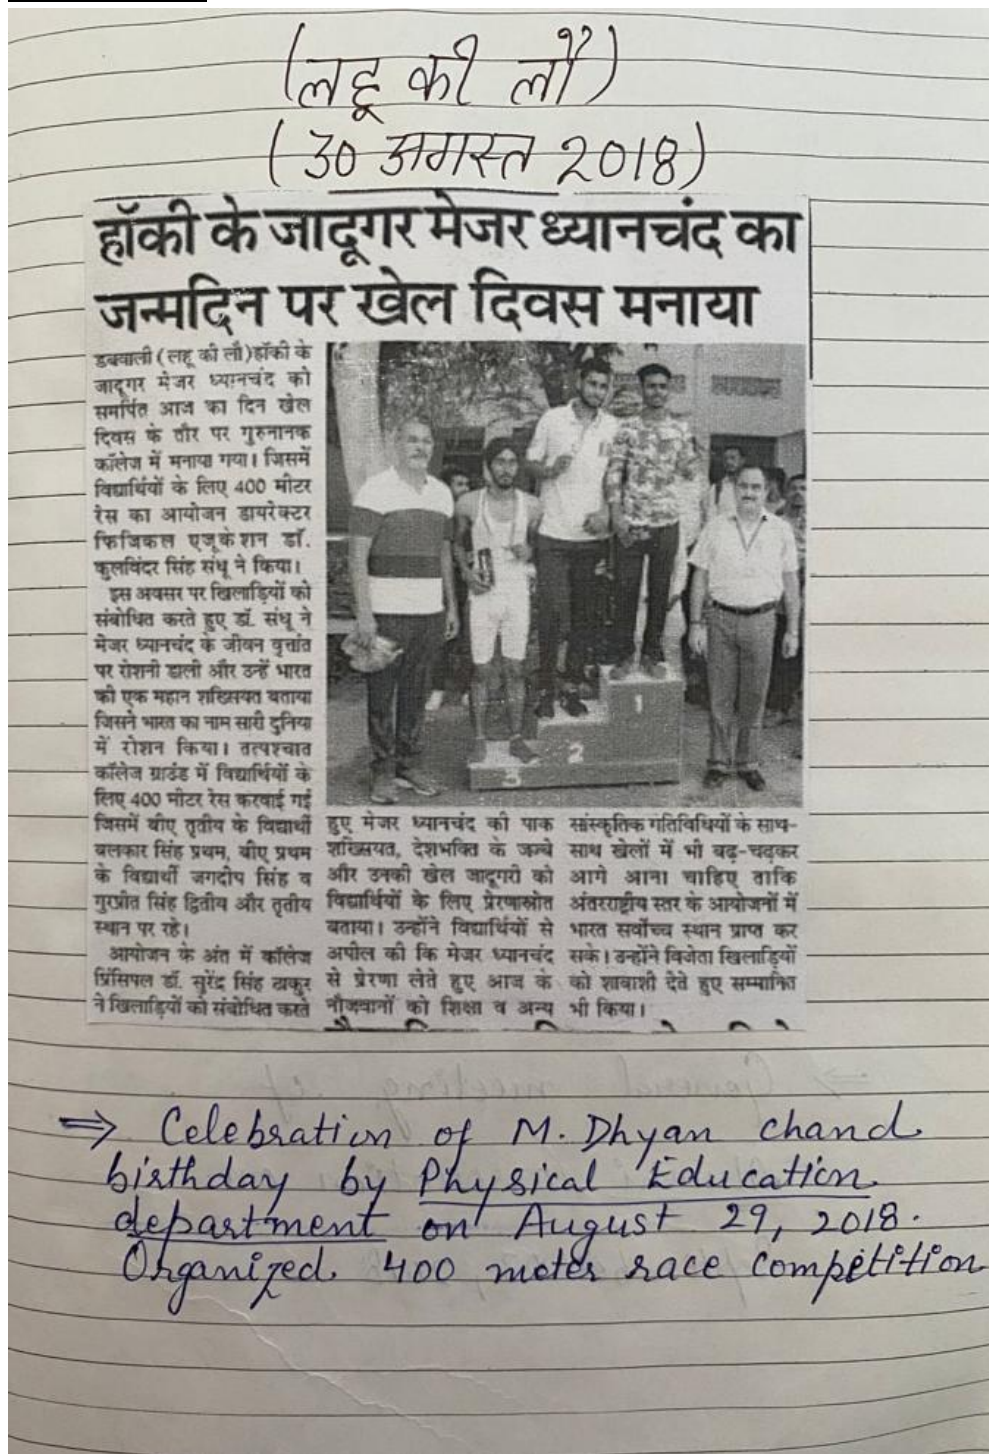 (लहू की लौ)
(30 अगस्त 2018)
हॉकी के जादूगर मेजर ध्यानचंद का
जन्मदिन पर खेल दिवस मनाया
डबवाली (लहू की लौ)हॉकी के
जादूगर मेजर ध्यानचंद को
समर्पित आज का दिन खेल
दिवस के तौर पर गुरुनानक
कॉलेज में मनाया गया। जिसमें
विद्यार्थियों के लिए 400 मीटर
रेस का आयोजन डायरेक्टर
फिजिकल एजूकेशन डॉ.
कुलविंदर सिंह संधू ने किया।
इस अवसर पर खिलाड़ियों को
संबोधित करते हुए डॉ. संधू ने
मेजर ध्यानचंद के जीवन वृत्तांत
पर रोशनी डाली और उन्हें भारत
की एक महान शख्सियत बताया
जिसने भारत का नाम सारी दुनिया
में रोशन किया। तत्पश्चात
कॉलेज ग्राउंड में विद्यार्थियों के
लिए 400 मीटर रेस करवाई गई
जिसमें बीए तृतीय के विद्यार्थी
बलकार सिंह प्रथम, बीए प्रथम
के विद्यार्थी जगदीप सिंह व
गुरप्रीत सिंह द्वितीय और तृतीय
स्थान पर रहे।
आयोजन के अंत में कॉलेज
प्रिंसिपल डॉ. सुरेंद्र सिंह ठाकुर
ने खिलाड़ियों को संबोधित करते
हुए मेजर ध्यानचंद की पाक
शख्सियत, देशभक्ति के जज्बे
और उनकी खेल जादूगरी को
विद्यार्थियों के लिए प्रेरणास्रोत
बताया। उन्होंने विद्यार्थियों से
अपील की कि मेजर ध्यानचंद
से प्रेरणा लेते हुए आज के
नौजवानों को शिक्षा व अन्य
सांस्कृतिक गतिविधियों के साथ-
साथ खेलों में भी बढ़-चढ़कर
आगे आना चाहिए ताकि
अंतरराष्ट्रीय स्तर के आयोजनों में
भारत सर्वोच्च स्थान प्राप्त कर
सके। उन्होंने विजेता खिलाड़ियों
को शाबाशी देते हुए सम्मानित
भी किया।
1
2
3
⇒ Celebration of M. Dhyan chand
birthday by Physical Education
department on August 29, 2018.
Organized. 400 meter race competition